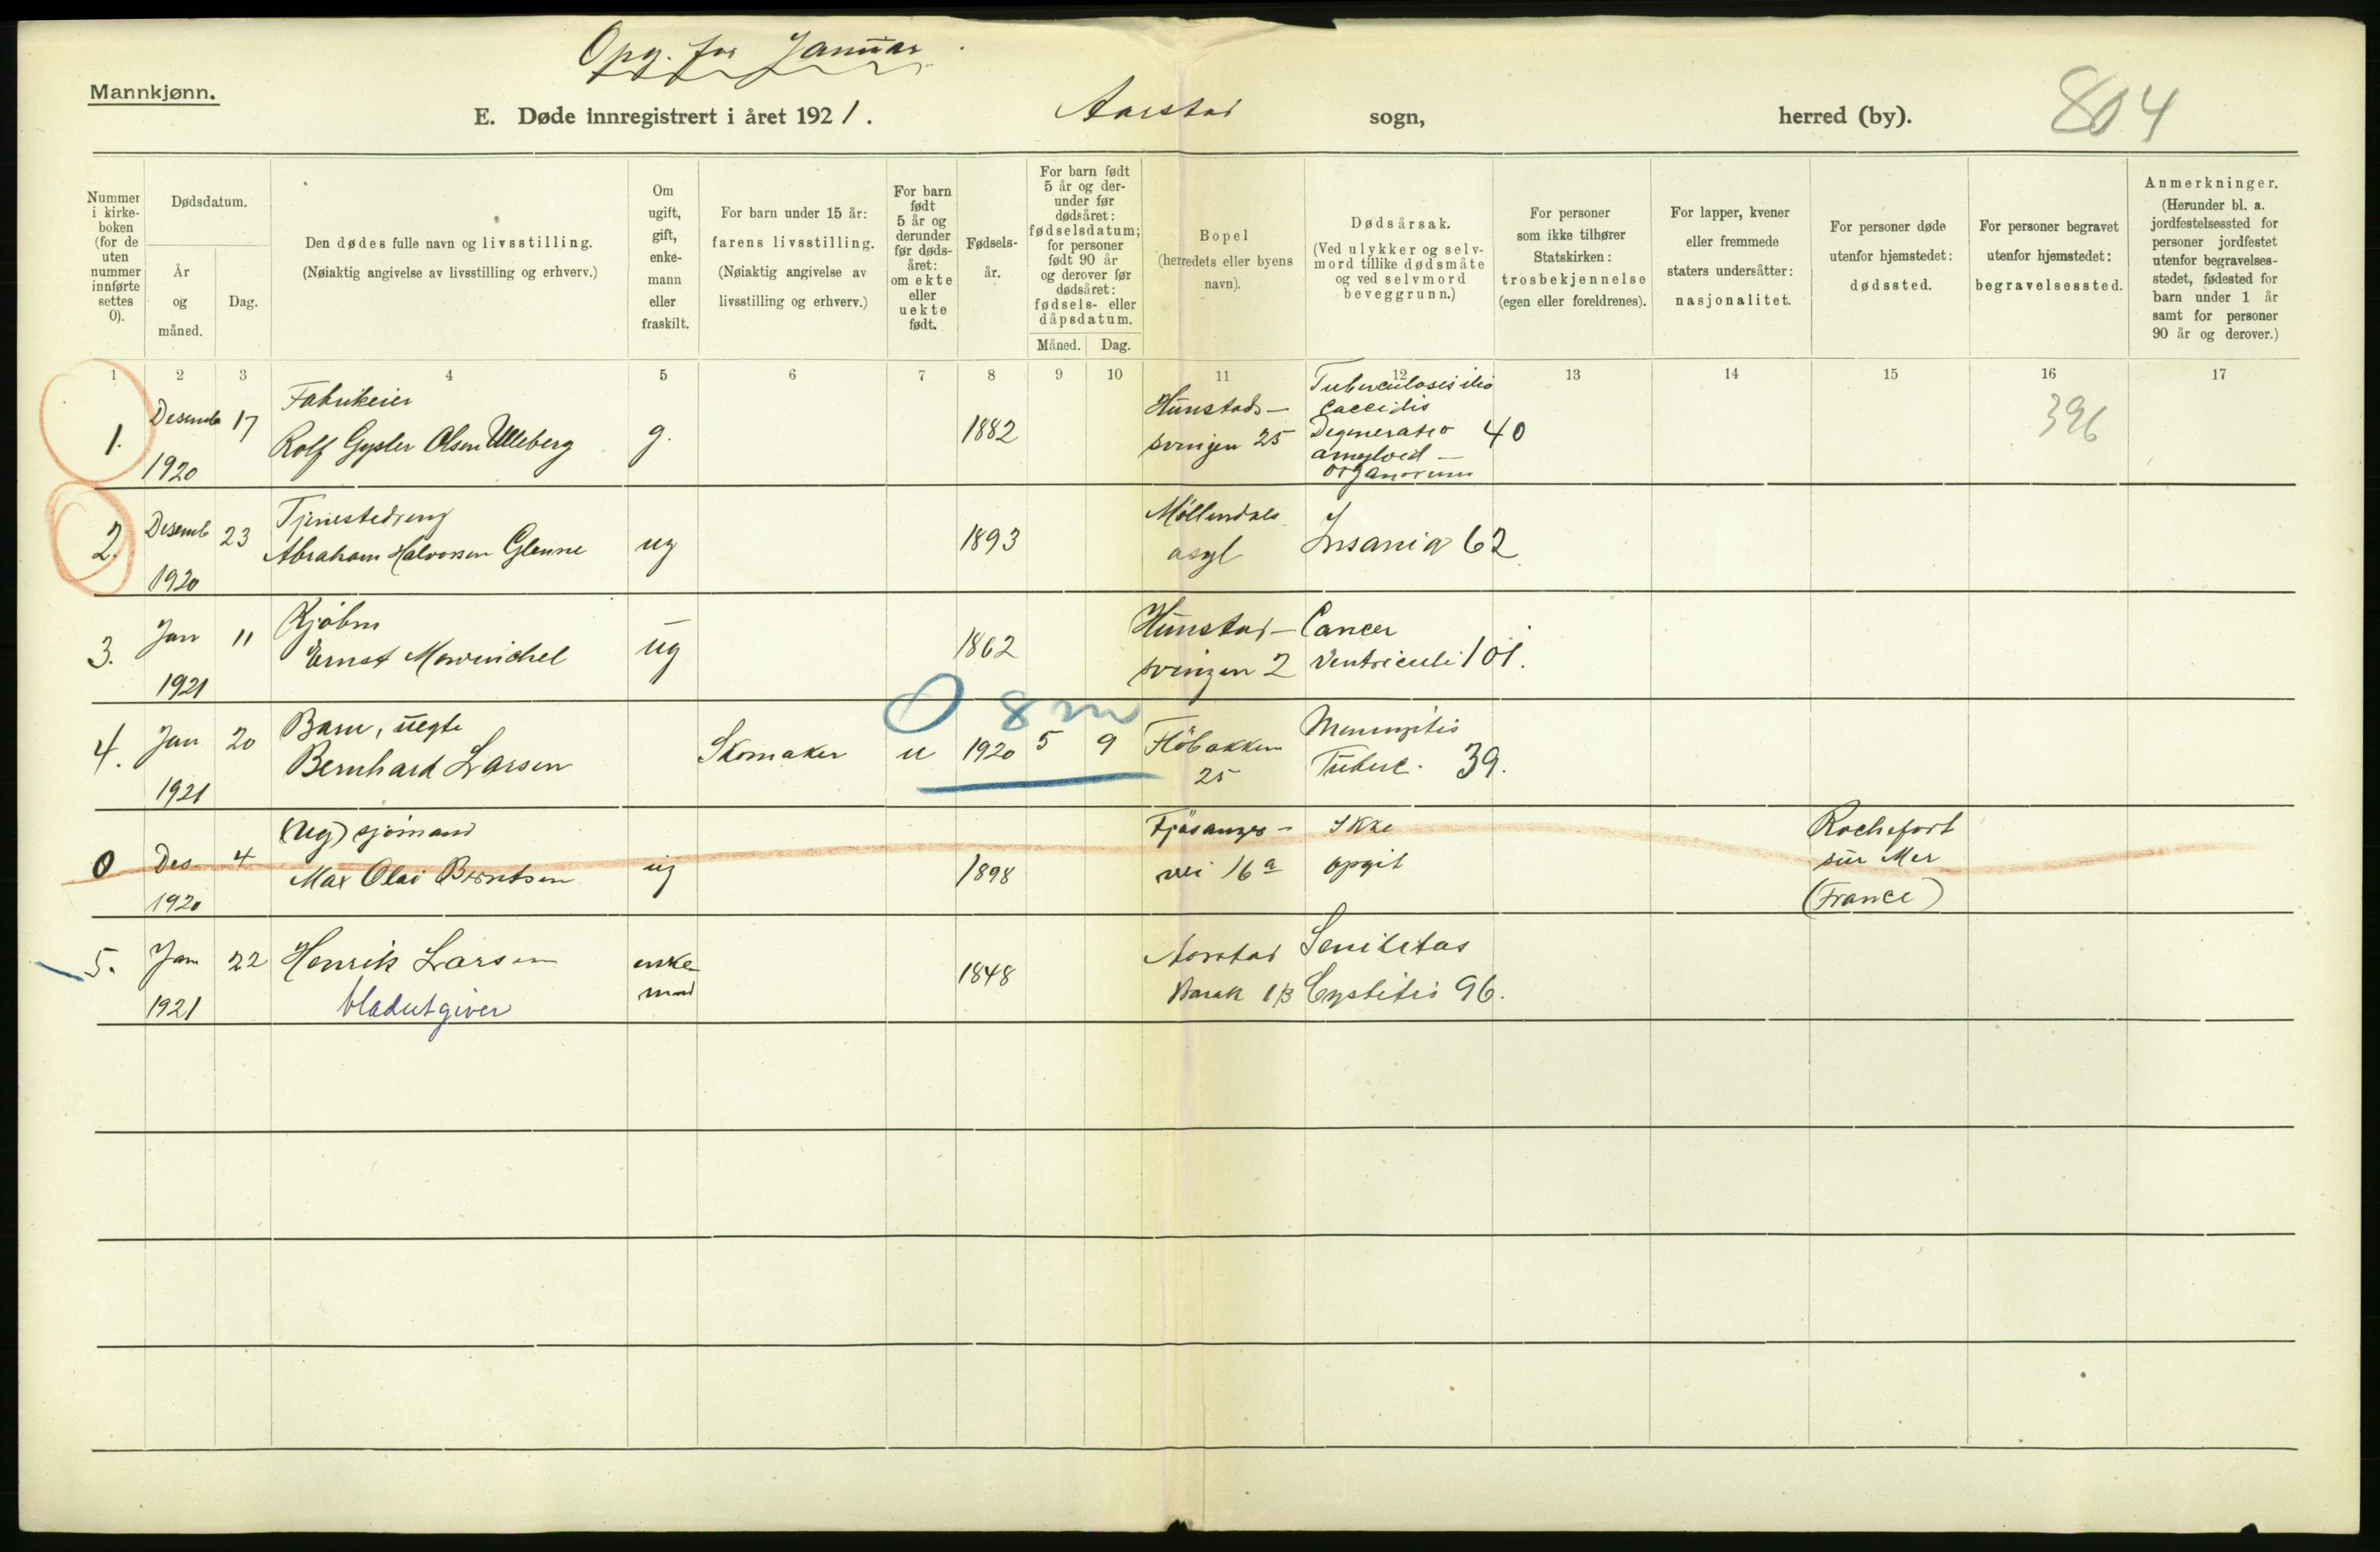 Opg. for Januar
Mannkjønn.
E. Døde innregistrert i året 1921. Aarstad sogn, herred (by). 804
Nummer i kirkeboken (for de uten nummer innførte settes 0).
Dødsdatum.
År og måned.
Dag.
Den dødes fulle navn og livsstilling.
(Nøiaktig angivelse av livsstilling og erhverv.)
Om ugift, gift, enkemann eller fraskilt.
For barn under 15 år: farens livsstilling.
(Nøiaktig angivelse av livsstilling og erhverv.)
For barn født 5 år og derunder før dødsåret: om ekte eller uekte født.
Fødselsår.
For barn født 5 år og derunder før dødsåret: fødselsdatum; for personer født 90 år og derover før dødsåret: fødsels- eller dåpsdatum.
Måned. Dag.
Bopel (herredets eller byens navn).
Dødsårsak.
(Ved ulykker og selvmord tillike dødsmåte og ved selvmord beveggrunn.)
For personer som ikke tilhører Statskirken: trosbekjennelse (egen eller foreldrenes).
For lapper, kvener eller fremmede staters undersåtter: nasjonalitet.
For personer døde utenfor hjemstedet: dødssted.
For personer begravet utenfor hjemstedet: begravelsessted.
Anmerkninger.
(Herunder bl. a. jordfestelsessted for personer jordfestet utenfor begravelsesstedet, fødested for barn under 1 år samt for personer 90 år og derover.)
1 2 3 4 5 6 7 8 9 10 11 12 13 14 15 16 17
1. Desemb 1920 17 Fabrikeier
Rolf Gysler Olsen Ulleberg g. 1882 Hunstad-
svingen 25 Tuberculosis ilio
Degeneratio 40
amyloid -
organorum 396
2. Desemb 1920 23 Tjenestedreng
Abraham Halvorsen Glenne ug 1893 Møllendals
asyl Insania 62
3. Jan 1921 11 Kjøbm
Ernst Mowinckel ug 1862 Hunstad-
svingen 2 Cancer
ventriculi 101.
0 8 m
4. Jan 1921 20 Barn, uegte
Bernhard Larsen Skomaker u 1920 5 9 Fløbakken
25 Meningitis
Tuberc. 39.
0 Des 1920 4 (ug) sjømand
Max Olai Berntsen ug 1898 Fjøsanger-
vei 16 a Ikke
opgit Rochefort
sur Mer
(France)
5. Jan 1921 22 Henrik Larsen
bladutgiver enke-
mand 1848 Aarstad
Barak 1 B Senilitas
Cystitis 96.